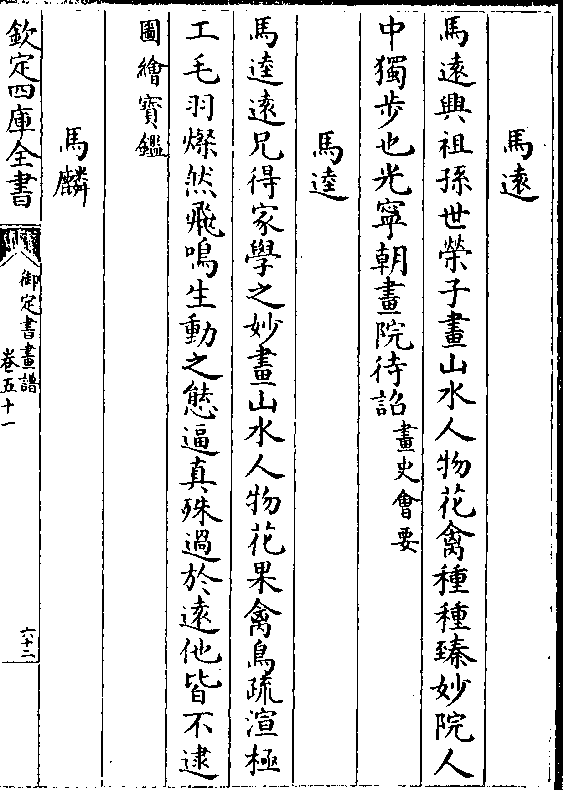 馬遠
馬遠興祖孫世榮子畫山水人物花禽種種臻妙院人
中獨步也光寧朝畫院待詔畫史會要
馬逵
馬逵遠兄得家學之妙畫山水人物花果禽鳥疏渲極
工毛羽燦然飛鳴生動之態逼真殊過於遠他皆不逮
圖繪寶鑑
馬麟
欽定四庫全書
御定書畫譜
卷五十一
六十二